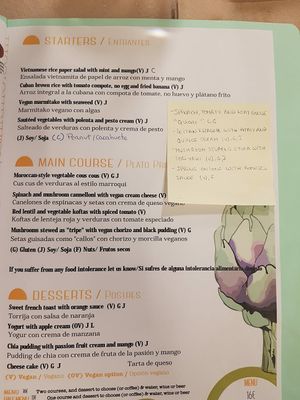 STARTERS / ENTRANTES
Vietnamese rice paper salad with mint and mango(V) J C
Ensalada vietnamita de papel de arroz con menta y mango
Cuban brown rice with tomato compote, no egg and fried banana (V) J
Arroz integral a la cubana con compota de tomate, no huevo y plátano frito
Vegan marmitako with seaweed (V) J
Marmitako vegano con algas
Sauted vegetables with polenta and pesto cream (V) J
Salteado de verduras con polenta y crema de pesto
(J) Soy/ Soja (C) Peanut / Cacahuete
MAIN COURSE / PLATO PRI
Moroccan-style vegetable cous cous (V) G J
Cus cus de verduras al estilo marroqui
Spinach and mushroom cannelloni with vegan cream cheese (V)
Canelones de espinacas y setas con crema de queso vegano
Red lentil and vegetable koftas with spiced tomato (V)
Koftas de lenteja roja y verduras con tomate especiado
Mushrooms stewed as "tripe" with vegan chorizo and black pudding (V) G
Setas guisadas como "callos" con chorizo y morcilla veganos
(G) Gluten (J) Soy/ Soja (F) Nuts/ Frutos secos
If you suffer from any food intolerance let us know/Si sufres de alguna intolerancia alimentaria
DESSERTS / POSTRES
Sweet french toast with orange sauce (V) G J
Torrija con salsa de naranja
Yogurt with apple cream (OV) J L
Yogur con crema de manzana
Chia pudding with passion fruit cream and mango (V) J
Pudding de chia con crema de fruta de la pasión y mango
Cheese cake (V) G J Tarta de queso
(V) Vegan / Vegano (OV) Vegan option / Opción vegano
MENU
Two courses, and dessert to choose (or coffee) & water, wine or beer
One course and dessert to choose (or coffee) & water, wine or beer
MENU
16€